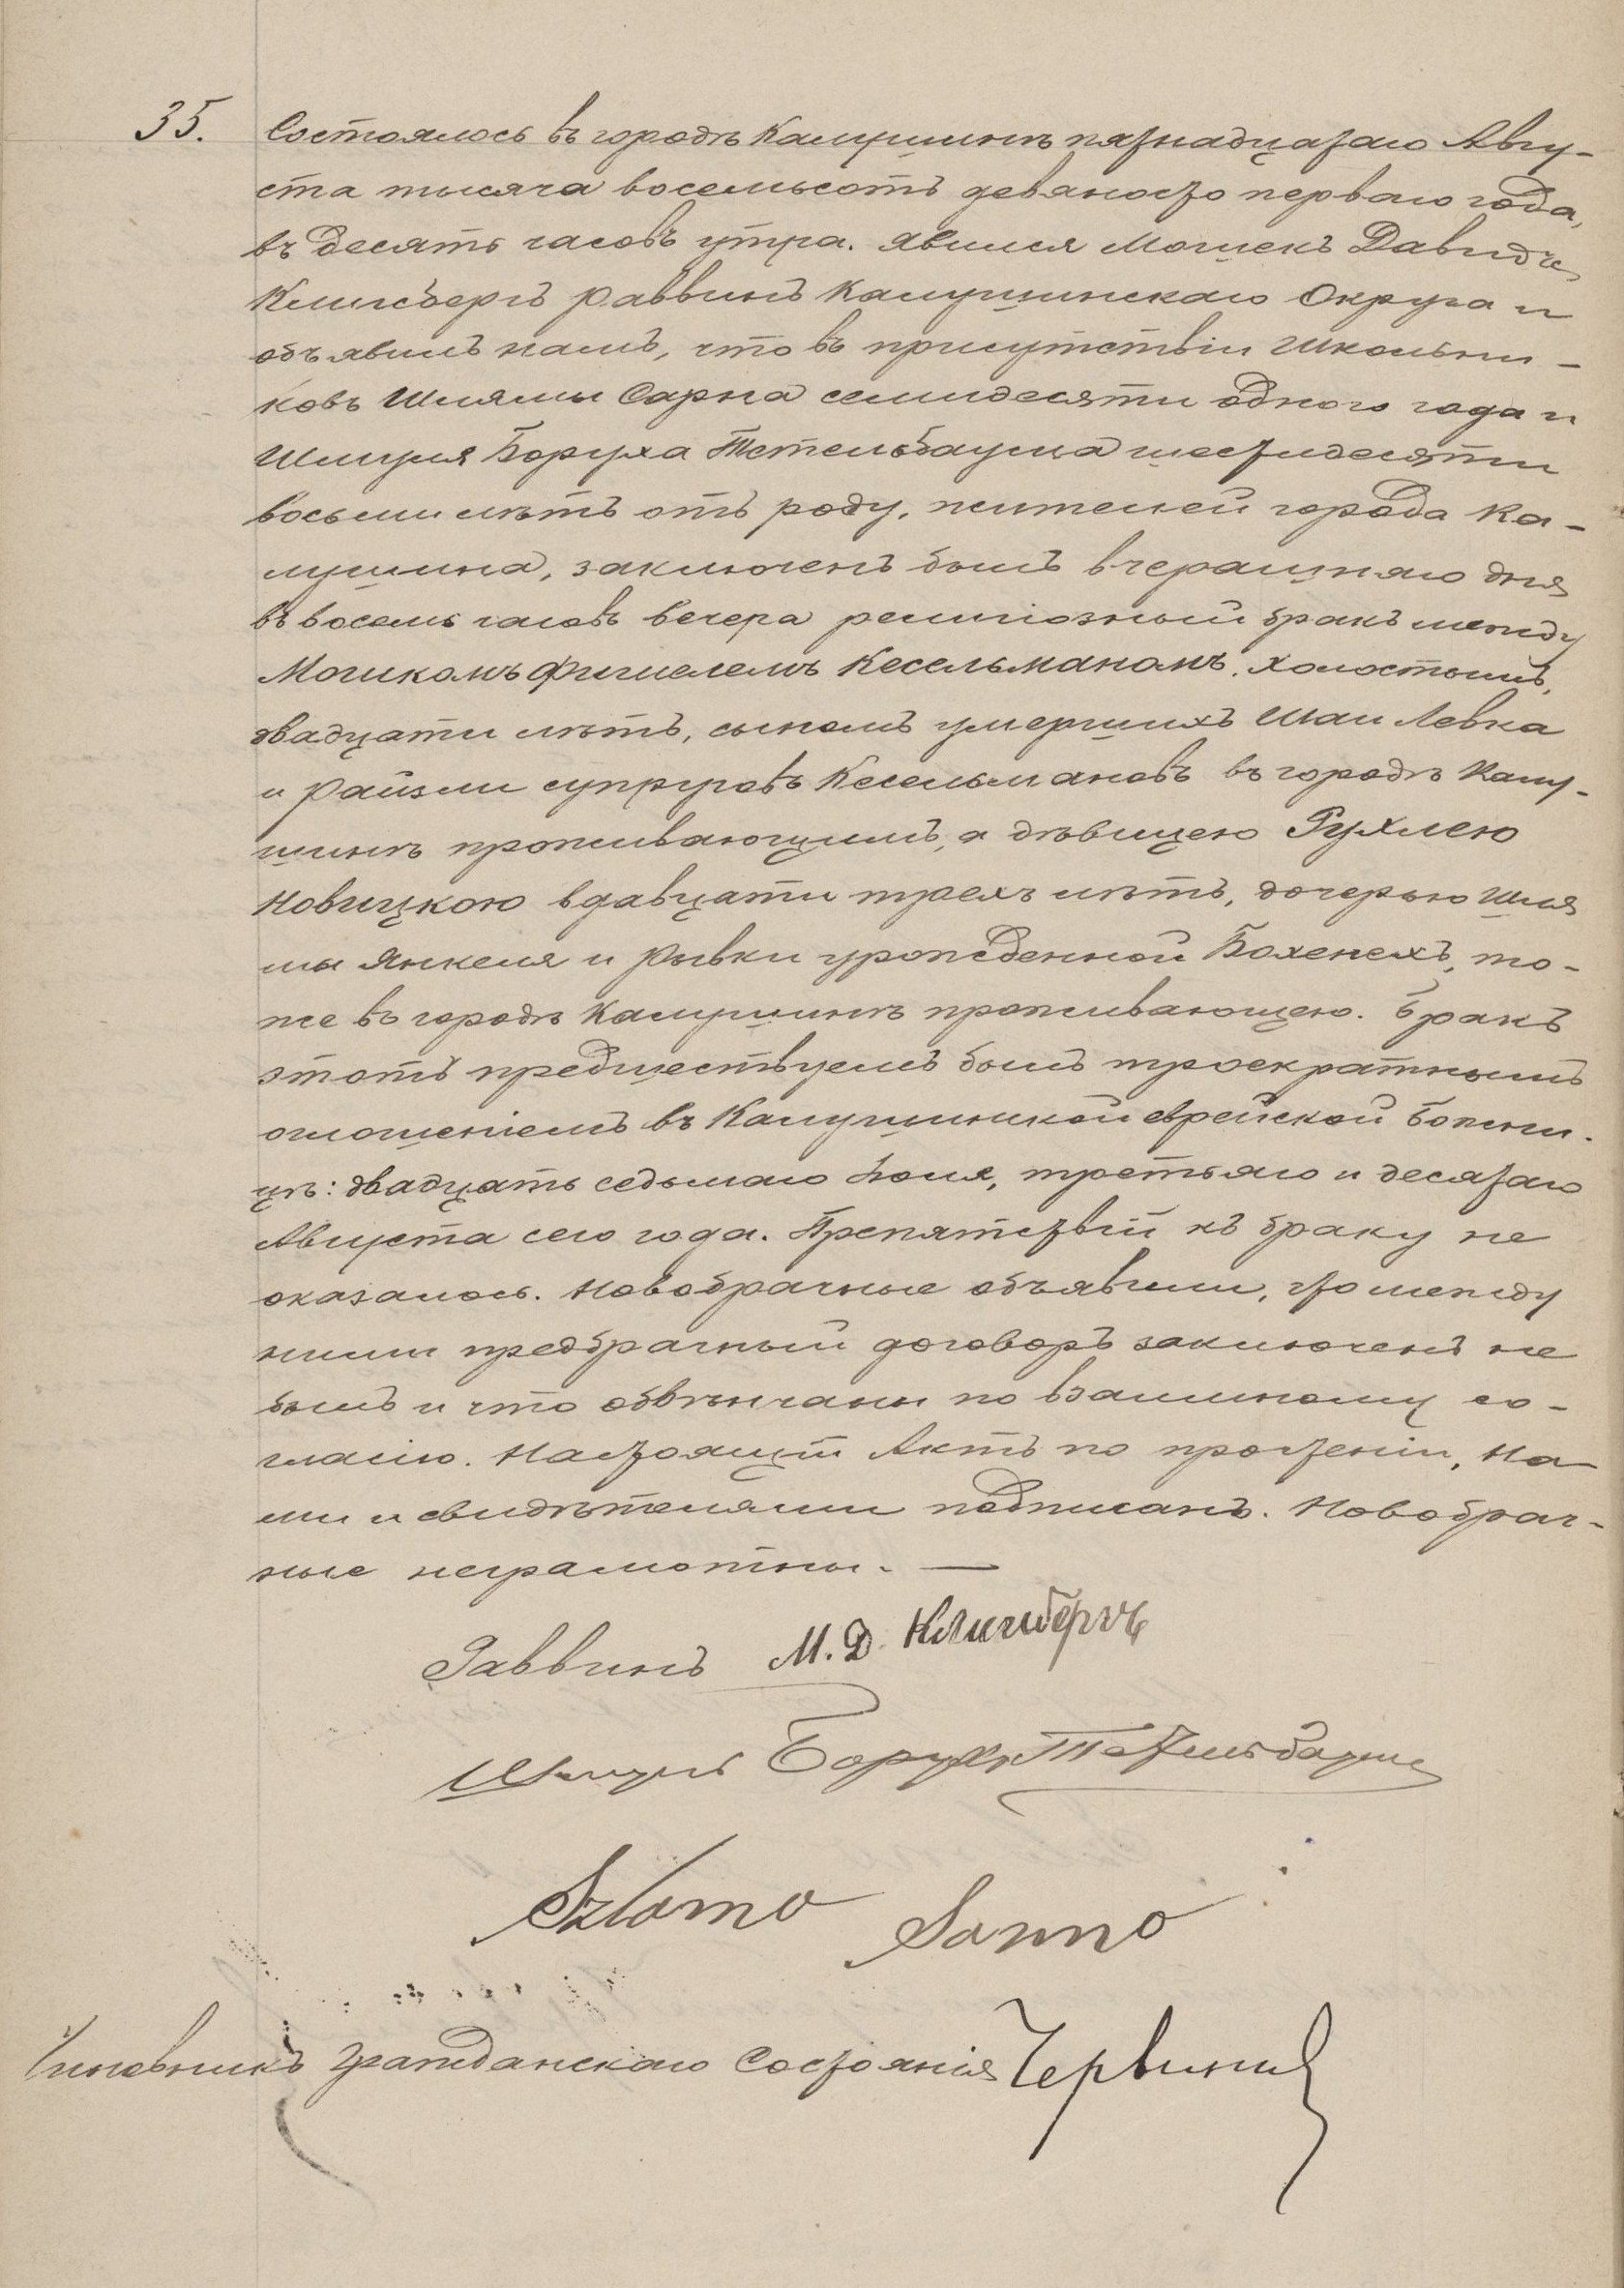 35. Состоялось въ городѣ Калушинѣ пятнадцатаго Авгу-
ста тысяча восемьсотъ девяносто перваго года,
въ десять часовъ утра. Явился Мошекъ Давидъ
Клингбергъ раввинъ Калушинскаго Округа и
объявилъ намъ, что въ присутствіи Школьни-
ковъ Шлямы Сарна семидесяти одного года и
Шмуля Боруха Тетельбаума шестидесяти
восьми лѣтъ отъ роду, жителей города Ка-
лушина, заключенъ былъ вчерашняго дня
въ восемь часовъ вечера религіозный бракъ между
Мошкомъ Фишелемъ Кесельманомъ, холостымъ,
двадцати лѣтъ, сыномъ умершихъ Шаи Левка
и Райзли супруговъ Кесельмановъ въ городѣ Калу-
шинѣ проживающимъ, а дѣвицею Рухлею
Новицкою вдавцати трехъ лѣтъ, дочерью Шля
мы Янкеля и Рывки урожденной Бохенехъ, то-
же въ городѣ Калушинѣ проживающею. Бракъ
этотъ предшествуемъ былъ троекратнымъ
оглошеніемъ въ Калушинской еврейской Божни-
цѣ: двадцать седьмаго Іюля, третьяго и десятаго
Августа сего года. Препятствій къ браку не
оказалось. Новобрачные объявили, что между
ними предбрачный договоръ заключенъ не
былъ и что обвѣнчаны по взаимному со-
гласію. Настоящій Актъ по прочтеніи, На
ми и свидѣтелями подписанъ. Новобрач-
ные неграмотны. —
Раввинъ М. Д. Клингбергъ
Шмуль Борухъ Тетельбаумъ
Szlamo Sarno
Чиновникъ Гражданскаго Состоянія